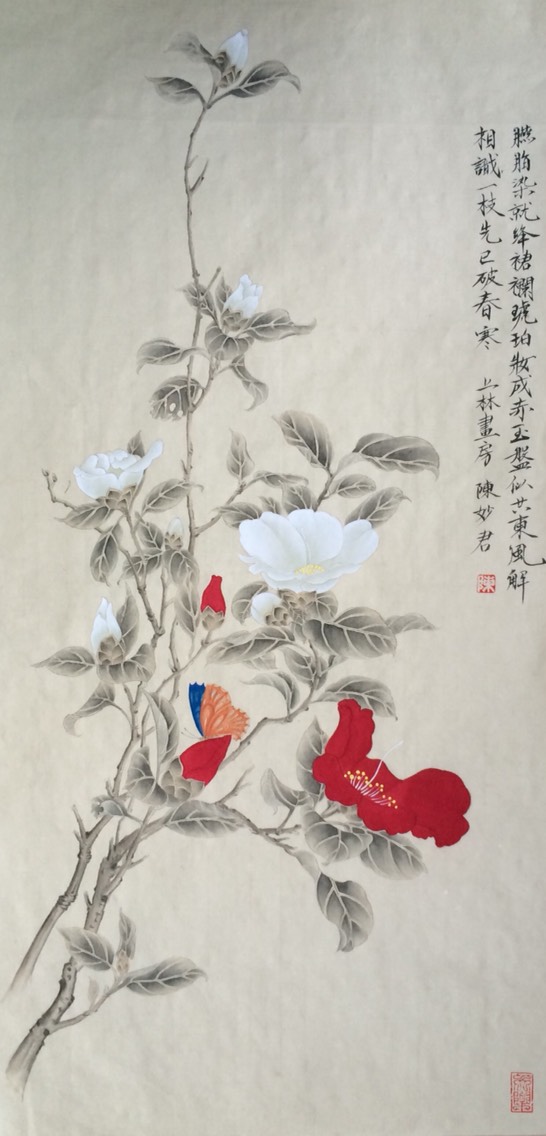 臙脂染就绛裙襴琥珀妝成赤玉盤似共東風解
相識一枝先已破春寒 上林畫房 陳妙君
陳